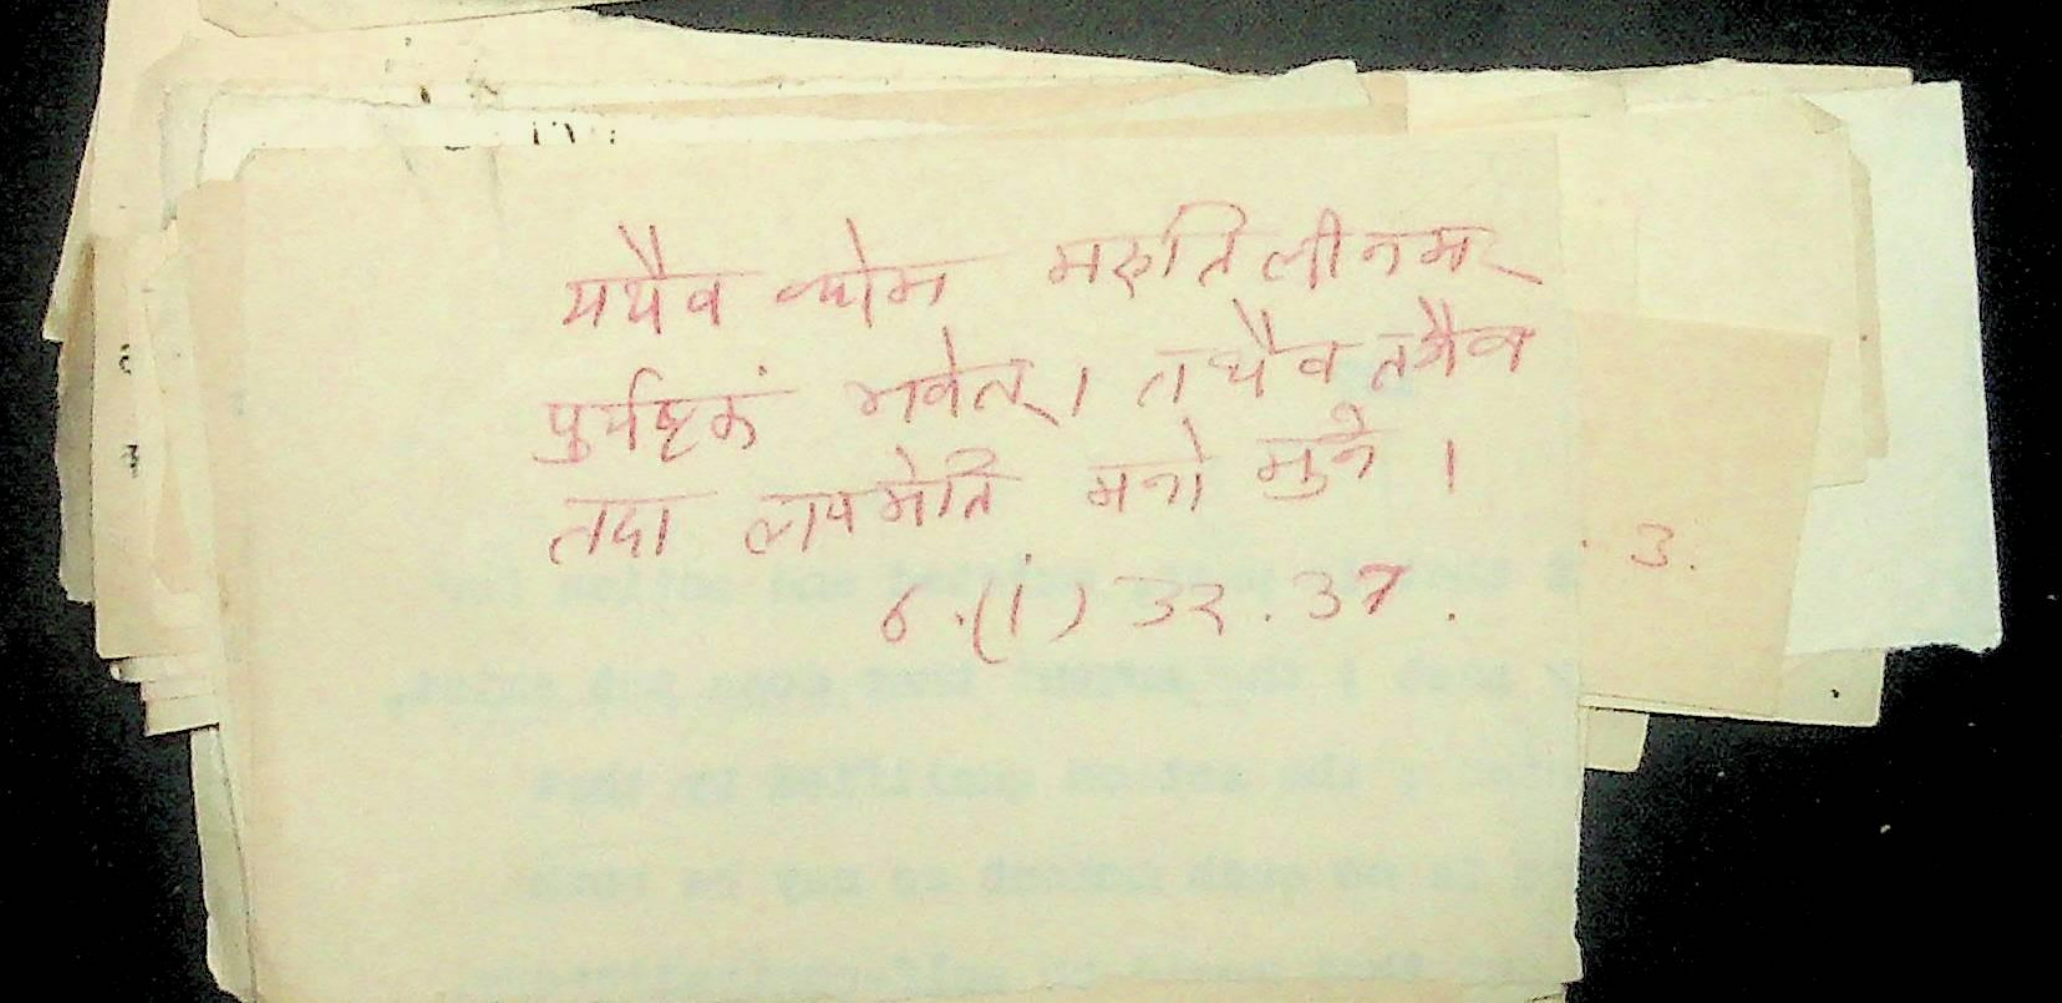 यथैव व्योम मरुति लीनमर
पुर्यष्टकं भवेत् । तथैव तत्रैव
तदा लयमेति मनो मुने ।
6.(i) 32.37.
3.